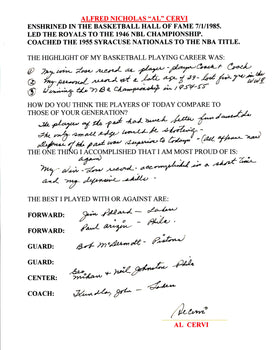 ALFRED NICHOLAS "AL" CERVI
ENSHRINED IN THE BASKETBALL HALL OF FAME 7/1/1985.
LED THE ROYALS TO THE 1946 NBL CHAMPIONSHIP.
COACHED THE 1955 SYRACUSE NATIONALS TO THE NBA TITLE.
THE HIGHLIGHT OF MY BASKETBALL PLAYING CAREER WAS:
① My win Loss record as player - player-Coach & Coach
② My personal record at a late age of 28 - lost five yrs in the WWII
③ Winning the NBA Championship in 1954-55
HOW DO YOU THINK THE PLAYERS OF TODAY COMPARE TO
THOSE OF YOUR GENERATION?
The players of the past had much better fundamentals
The only small edge would be shooting -
Defense of the past was superior to todays - (all offense now)
THE ONE THING I ACCOMPLISHED THAT I AM MOST PROUD OF IS:
again
My win - Loss record accomplished in a short time
and my defensive skills -
THE BEST I PLAYED WITH OR AGAINST ARE:
FORWARD: Jim Pollard - Lakers
FORWARD: Paul Arizin - Phila.
GUARD: Bob McDermott - Pistons
GUARD:
CENTER: Geo. Mikan & Neil Johnston Phila
COACH: Kundla, John - Lakers
Al Cervi
AL CERVI